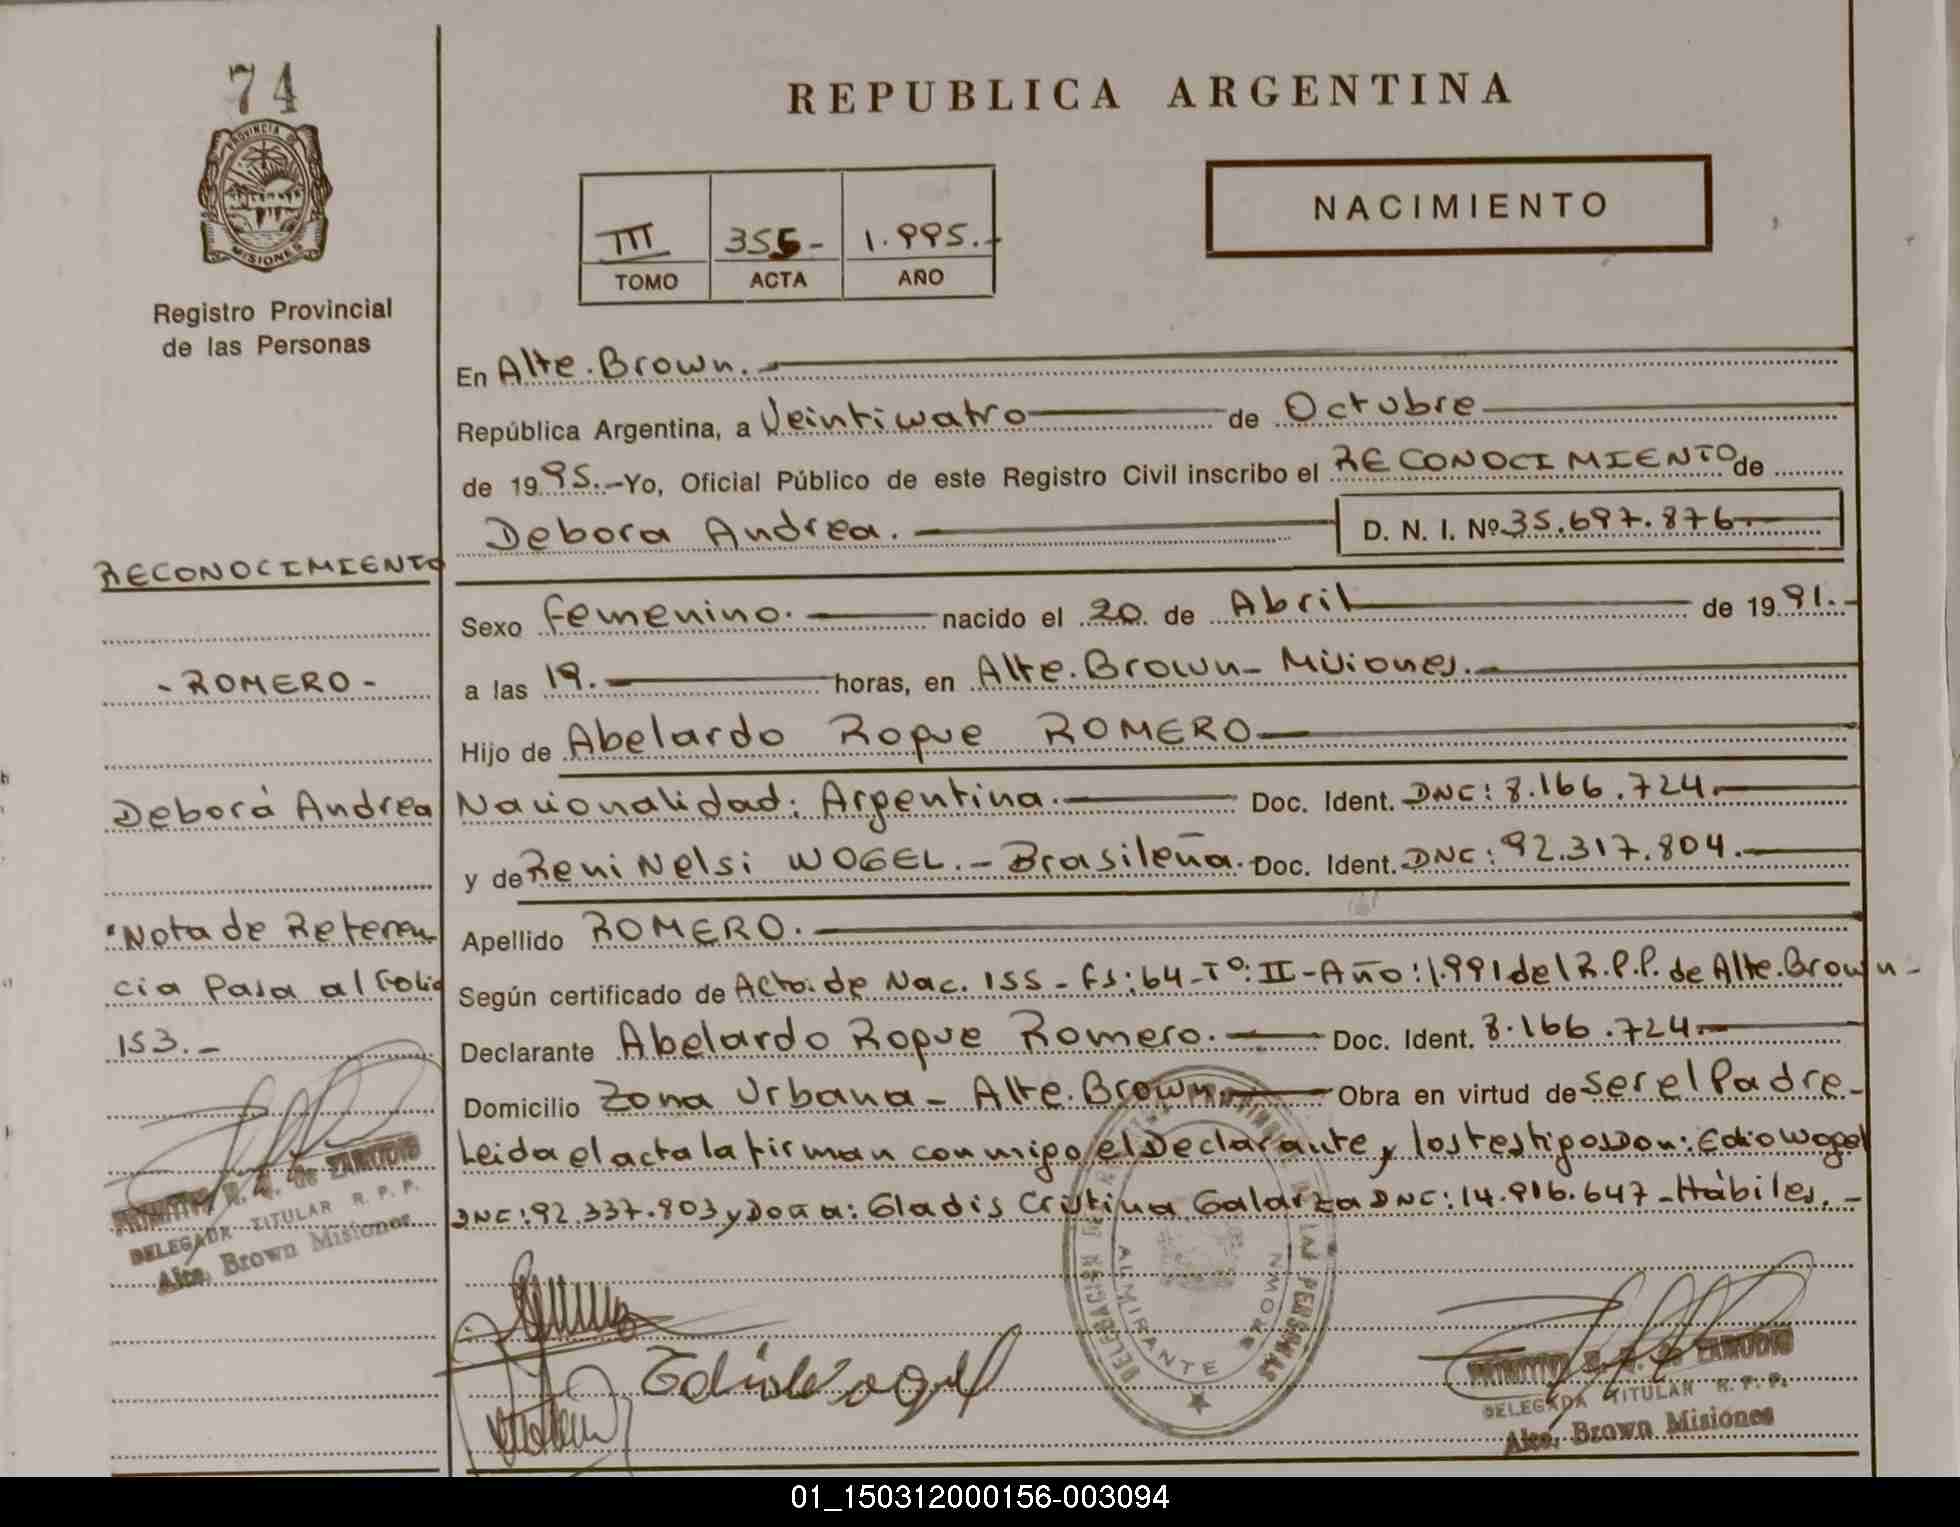 74
PROVINCIA DE
MISIONES
Registro Provincial
de las Personas
REPUBLICA ARGENTINA
III 355- 1.995.-
TOMO ACTA AÑO
NACIMIENTO
En Alte. Brown.
República Argentina, a Veinticuatro de Octubre
de 1995.-Yo, Oficial Público de este Registro Civil inscribo el RECONOCIMIENTO de
Debora Andrea. D. N. I. Nº 35.697.876-
Sexo Femenino. nacido el 20 de Abril de 1991.-
a las 19. horas, en Alte. Brown- Misiones.-
Hijo de Abelardo Roque ROMERO
Nacionalidad: Argentina. Doc. Ident. DNC: 8.166.724.
y de Reni Nelsi WOGEL.- Brasileña. Doc. Ident. DNC: 92.317.804.
Apellido ROMERO.
Según certificado de Acta de Nac. 155 - Fs: 64 - Tº: II - Año: 1.991 del R.P.P. de Alte. Brown-
Declarante Abelardo Roque Romero. Doc. Ident. 8.166.724.
Domicilio Zona Urbana - Alte. Brown Obra en virtud de ser el Padre-
Leida el acta la firman conmigo el Declarante y los testigos Don: Edio Wogel
DNC: 92.337.803 y Doña: Gladis Cristina Galarza DNC: 14.916.647 - Hábiles.-
RECONOCIMIENTO
- ROMERO -
Debora Andrea
"Nota de Referen
cia Pasa al Folio
153.-
DELEGADA TITULAR R. P. P.
Alte. Brown Misiones
ALMIRANTE BROWN
DELEGADA TITULAR R. P. P.
Alte. Brown Misiones
01_150312000156-003094